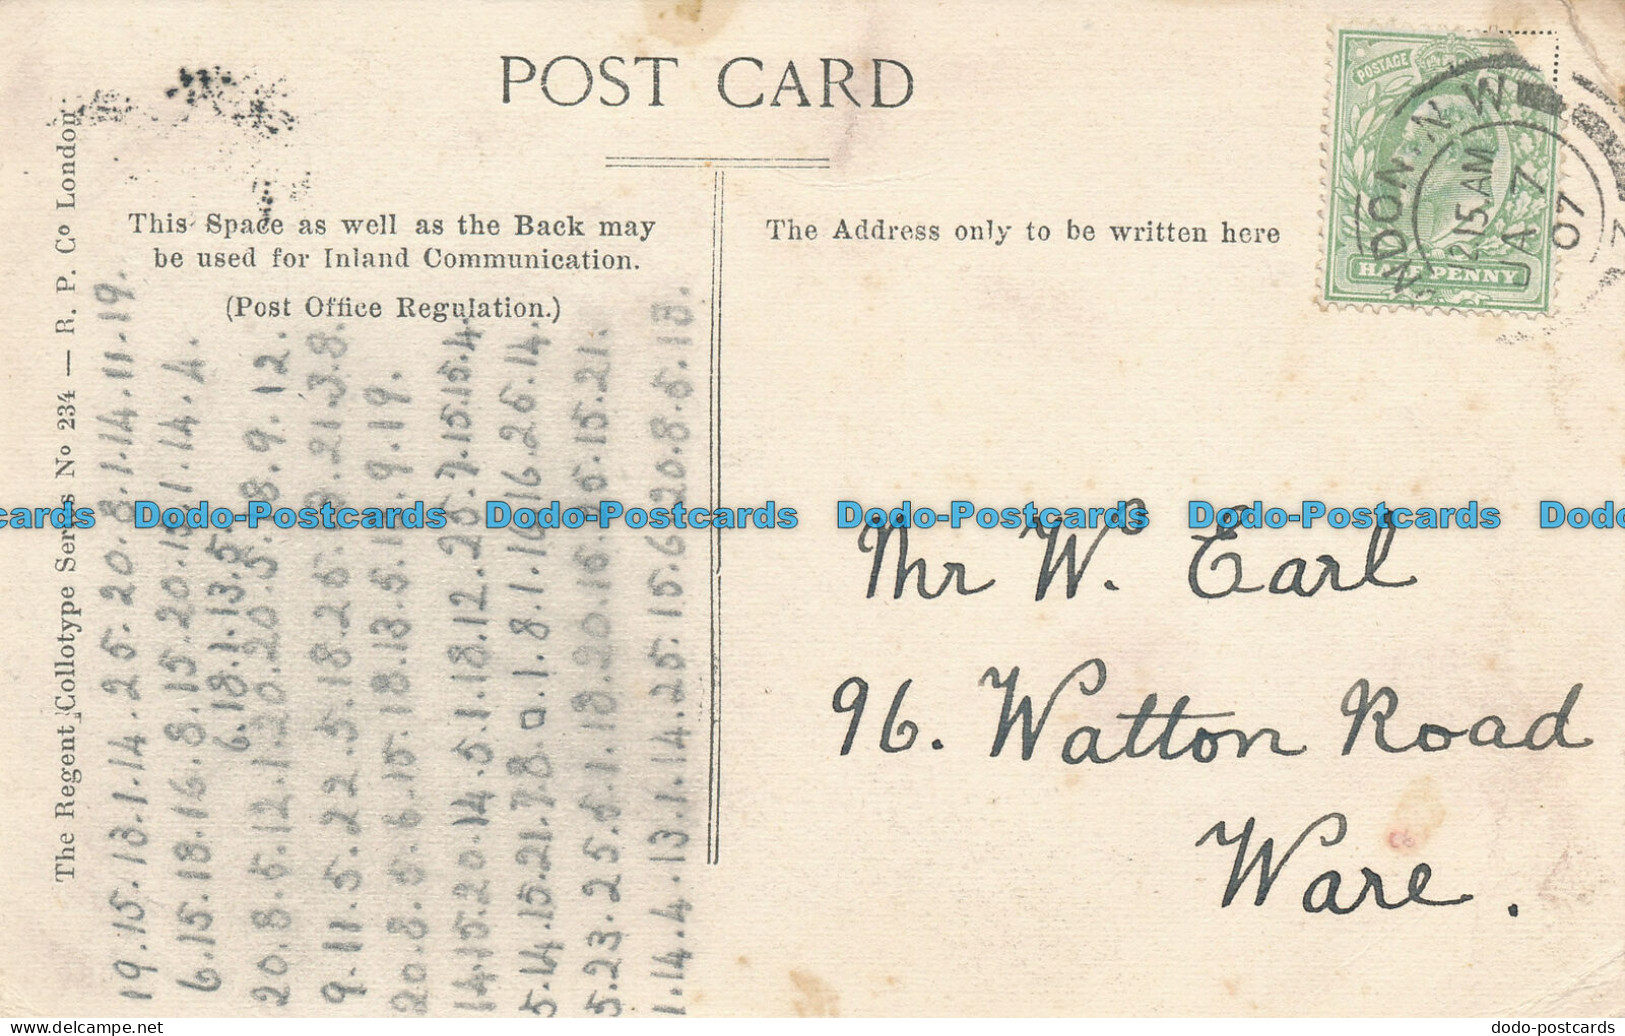 POST CARD
This Space as well as the Back may
be used for Inland Communication.
(Post Office Regulation.)
The Address only to be written here
The Regent Collotype Series No 234 — R. P. Co London.
19.15.13.1.14.25.20.8.1.14.11.19.
6.15.18.16.8.15.20.15.1.14.4.
6.18.1.13.5.
20.8.5.12.1.20.20.5.18.9.12.
9.11.5.22.5.18.25.13.21.3.8.
20.8.5.6.15.18.13.5.18.9.19.
14.15.20.14.5.1.18.12.25.7.15.15.4.
5.14.15.21.7.8.a.1.8.1.16.16.25.14.
5.23.25.5.1.18.20.15.25.15.21.
1.14.4.13.1.14.25.15.6.20.8.5.13.
POSTAGE
HALF PENNY
NDON. N.W
12.15 AM
JA 7
07
Mr W. Earl
96. Watton Road
Ware.
cards Dodo-Postcards Dodo-Postcards Dodo-Postcards Dodo-Postcards Dodo-Postcards Dodo-Postcards Dodo-Postcards Dodo-Postcards Dodo
http://www.delcampe.net/stores/dodo-postcards
dodo-postcards